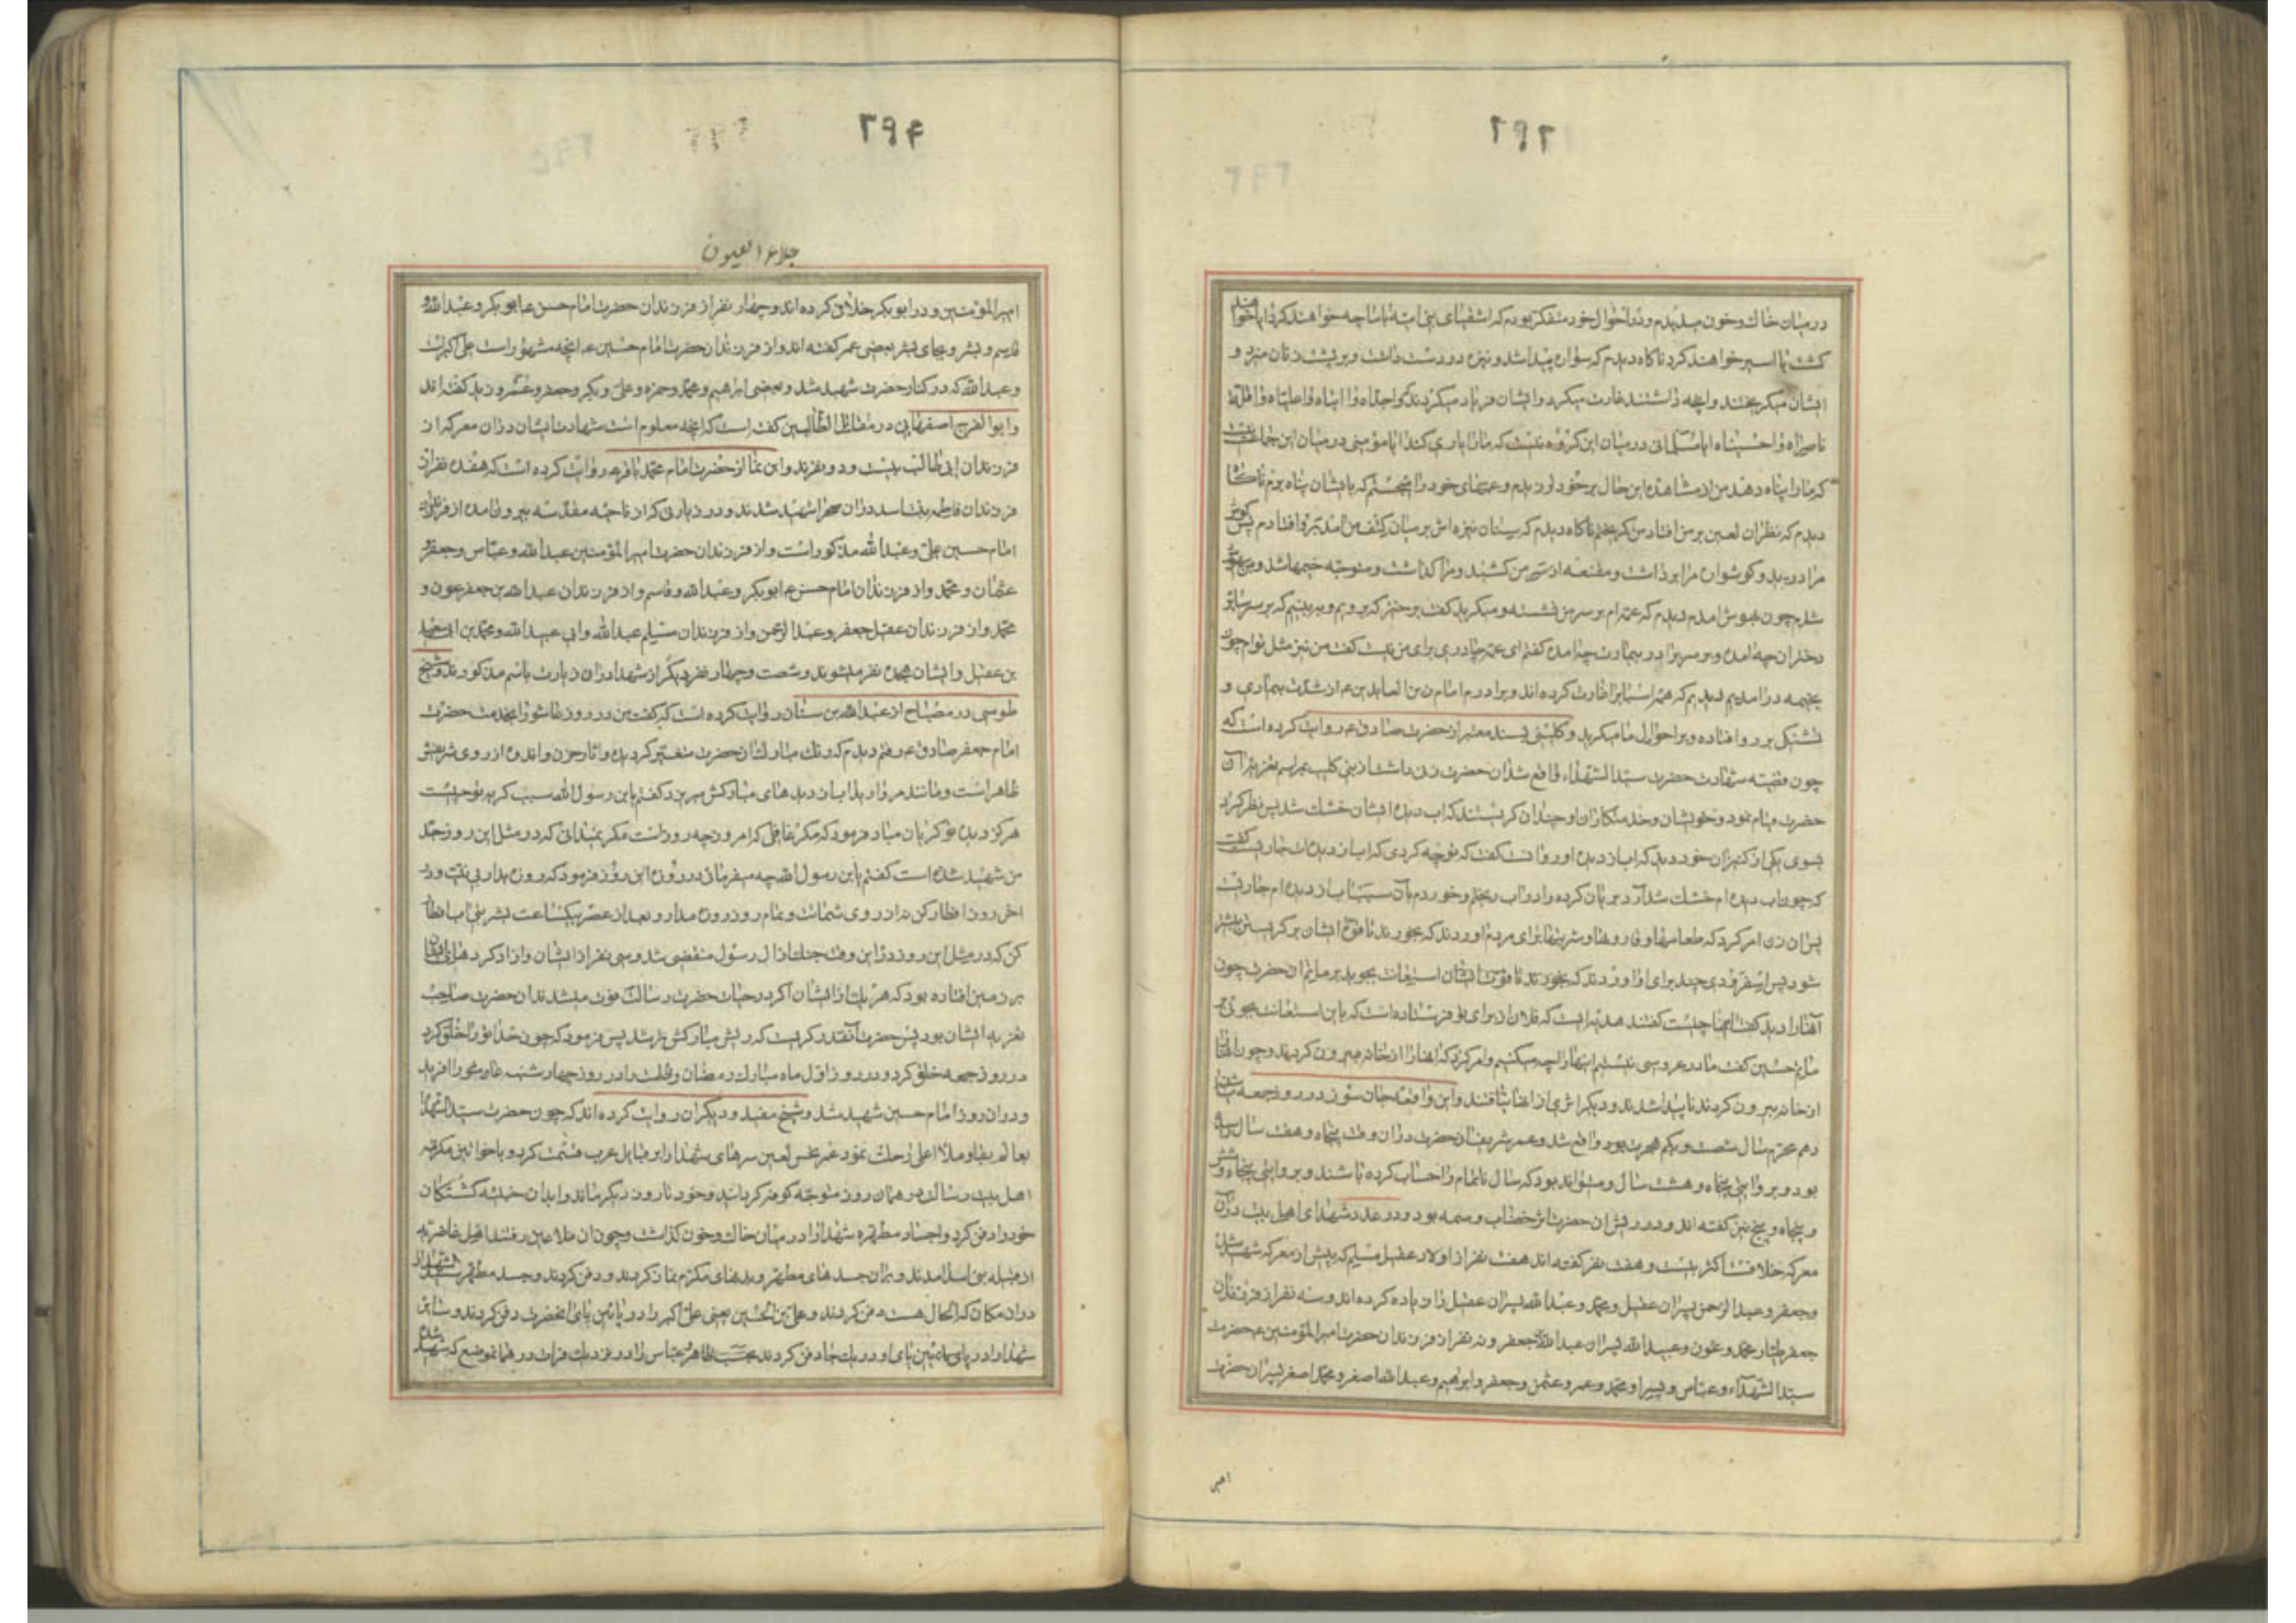 ۲۹۲
در میان خاک و خون میدیدم و در احوال خود متفکر بودم که اشقیای بنی امیه با ما چه خواهند کرد آیا خواهند
کشت یا اسیر خواهند کرد ناکاه دیدم که سواری پیدا شد و نیزه در دست داشت و بر پشت زنان میزد و
ایشان میکریختند و آنچه داشتند غارت میکرد و ایشان فریاد میکردند که واجداه وا ابتاه واعلیاه واقلة
ناصراه واحسیناه ایا مسلمانی در میان این کروه نیست که ما را یاری کند ایا مؤمنی در میان این جماعت نیست
که ما را پناه دهد من از مشاهده این حال بر خود لرزیدم و عمهای خود را میجستم که بایشان پناه برم ناکاه
دیدم که نظر آن لعین بر من افتاد من کریختم ناکاه دیدم که سنان نیزه اش بر میان کتف من آمد بر رو افتادم پس کوش
مرا درید و کوشواره مرا برداشت و مقنعه از سر من کشید و مرا کذاشت و متوجه خیمها شد و من بیهوش
شدم چون بهوش آمدم دیدم که عمه ام بر سر من نشسته و میکرید کفت برخیز که برویم و ببینیم که بر سر سایر
دختران چه آمده و بر سر برادر بیمارت چه آمده کفتم ای عمه چادری برای من نیست کفت من نیز مثل توام چون
بخیمه در آمدیم دیدیم که همه اسبابرا غارت کرده اند و برادرم امام زین العابدین ع از شدت بیماری و
تشنکی بر رو افتاده و بر احوال ما میکرید و کلینی بسند معتبر از حضرت صادق ع روایت کرده است که
چون قضیه شهادت حضرت سید الشهداء واقع شد آن حضرت زنی داشت از بنی کلب مراسم تعزیه آن
حضرت قیام نمود و خویشان و خدمتکاران او چندان کریستند که آب دیده ایشان خشک شد پس نظر کرد
بسوی یکی از کنیزان خود دید که آب از دیده او روانست کفت که تو چه کردی که آب از دیده ات جاریست کفت
که چون آب دیده ام خشک شد آرد بریان کرده را در آب ریختم و خوردم بآن سبب آب از دیده ام جاریست
پس آن زن امر کرد که طعامها و قاروتها و شربتها برای مردم اوردند که بخورند تا قوت ایشان بر کریستن بیشتر
شود پس اسفرودی چند برای او اوردند که بخورند تا قوت ایشان استعانت بجوید بر ماتم آن حضرت چون
آنها را دید کفت اینها چیست کفتند هدیه ایست که فلان از برای تو فرستاده است که باین استعانت بجوئی بر
ماتم حسین کفت ما در عروسی نیستیم اینها را چه میکنیم و امر کرد که آنها را از خانه بیرون کردند و چون آنها را
از خانه بیرون کردند ناپیدا شدند و دیکر اثری از آنها نیافتند و این واقعه جان سوز در روز جمعه یا شنبه
دهم محرم سال شصت و یکم هجرت بود واقع شد و عمر شریف آن حضرت در آن وقت پنجاه و هفت سال
بود و بروایتی پنجاه و هشت سال و میتواند بود که سال ناتمام را حساب کرده باشند و بروایتی پنجاه و شش
و پنجاه و پنج نیز کفته اند و در ریش آن حضرت اثر خضاب وسمه بود و در عدد شهدای اهل بیت در آن
معرکه خلافست اکثر بیست و هفت نفر کفته اند هفت نفر از اولاد عقیل مسلم که پیش از معرکه شهید شد
وجعفر و عبد الرحمن پسران عقیل و محمد و عبد الله پسران عقیل زیاده کرده اند و سه نفر از فرزندان
جعفر طیار محمد و عون و عبید الله پسران عبد الله جعفر و نه نفر از فرزندان حضرت امیر المؤمنین ع حضرت
سید الشهداء و عباس و پسر او محمد و عمر و عثمن و جعفر و ابراهیم و عبد الله اصغر و محمد اصغر پسران حضرت
امیر
۲۹۴
جلاء العیون
امیر المؤمنین و در ابو بکر خلاف کرده اند و چهار نفر از فرزندان حضرت امام حسن ع ابو بکر و عبد الله و
قاسم و بشر و بجای بشر بعضی عمر کفته اند و از فرزندان حضرت امام حسین ع آنچه مشهور است علی اکبر است
و عبد الله که در کنار حضرت شهید شد و بعضی ابراهیم و محمد و حمزه و علی و بکر و جعفر و عمر و زید کفته اند
و ابو الفرج اصفهانی در مقاتل الطالبین کفته است که آنچه معلوم است شهادت ایشان در آن معرکه از
فرزندان ابی طالب بیست و دو نفرند و ابن نما از حضرت امام محمد باقر ع روایت کرده است که هفده نفر از
فرزندان فاطمه بنت اسد در آن صحرا شهید شدند و در زیارتی که از ناحیه مقدسه بیرون آمده از فرزندان
امام حسین علی و عبد الله مذکور است و از فرزندان حضرت امیر المؤمنین عبد الله و عباس و جعفر و
عثمان و محمد و از فرزندان امام حسن ع ابو بکر و عبد الله و قاسم و از فرزندان عبد الله بن جعفر عون و
محمد و از فرزندان عقیل جعفر و عبد الرحمن و از فرزندان مسلم عبد الله و ابی عبید الله و محمد بن ابی سعید
بن عقیل و ایشان هجده نفر میشوند و شصت و چهار نفر دیکر از شهدا در آن زیارت باسم مذکورند و شیخ
طوسی در مصباح از عبد الله بن سنان روایت کرده است که کفت من در روز عاشورا بخدمت حضرت
امام جعفر صادق ع رفتم دیدم که رنک مبارک آن حضرت متغیر کردیده و آثار حزن و اندوه از روی شریفش
ظاهر است و مانند مروارید آب از دیدهای مبارکش میریزد کفتم یا بن رسول الله سبب کریه تو چیست
هرکز دیده تو کریان مباد فرمود که مکر غافلی که امروز چه روز است مکر نمیدانی که در مثل این روز جد
من شهید شده است کفتم یا بن رسول الله چه میفرمائی در روزه این روز فرمود که روزه بدار بی نیت و در
آخر روز افطار کن نه از روی شماتت و تمام روز روزه مدار و بعد از عصر بیکساعت بشربتی آب افطار
کن که در مثل این روز در این وقت جنک از آل رسول منقضی شد و سی نفر از ایشان و آزاد کرد های ایشان
بر زمین افتاده بود که هر یک از ایشان اکر در حیات حضرت رسالت فوت میشدند آن حضرت صاحب
تعزیه ایشان بود پس حضرت آنقدر کریست که ریش مبارکش تر شد پس فرمود که چون خدا نور را خلق کرد
در روز جمعه خلق کرد و در روز اول ماه مبارک رمضان و ظلمت را در روز چهار شنبه عاشورا آفرید
و در آن روز امام حسین شهید شد و شیخ مفید و دیکران روایت کرده اند که چون حضرت سید الشهدا
بعالم بقا و ملأ اعلی رحلت نمود عمر نحس لعین سرهای شهدا را بر قبایل عرب قسمت کرد و با خواتین مکرمه
اهل بیت رسالت در همان روز متوجه کوفه کردانید و خود تا روز دیکر ماند و ابدان خبیثه کشتکان
خود را دفن کرد و اجساد مطهره شهدا را در میان خاک و خون کذاشت و چون آن ملاعین رفتند اهل غاضریه
از قبیله بنی اسد آمدند و بر آن جسدهای مطهر و بدنهای مکرم نماز کردند و دفن کردند و جسد مطهر سید الشهدا را
در آن مکان که الحال هست دفن کردند و علی بن الحسین یعنی علی اکبر را در پائین پای آنحضرت دفن کردند و سایر
شهدا را در پائین پای او در یک جا دفن کردند عباس را در نزدیک فرات در همان موضع که شهید شده